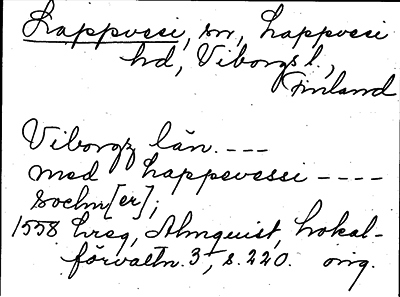 Lappvesi, sn, Lappvesi
hd, Viborgs l,
Finland
Viborgz län. ---
med Lappevessi ----
sochn[er];
1558 Ereg, Almquist, Lokal-
förvaltn. 3, s. 220. orig.